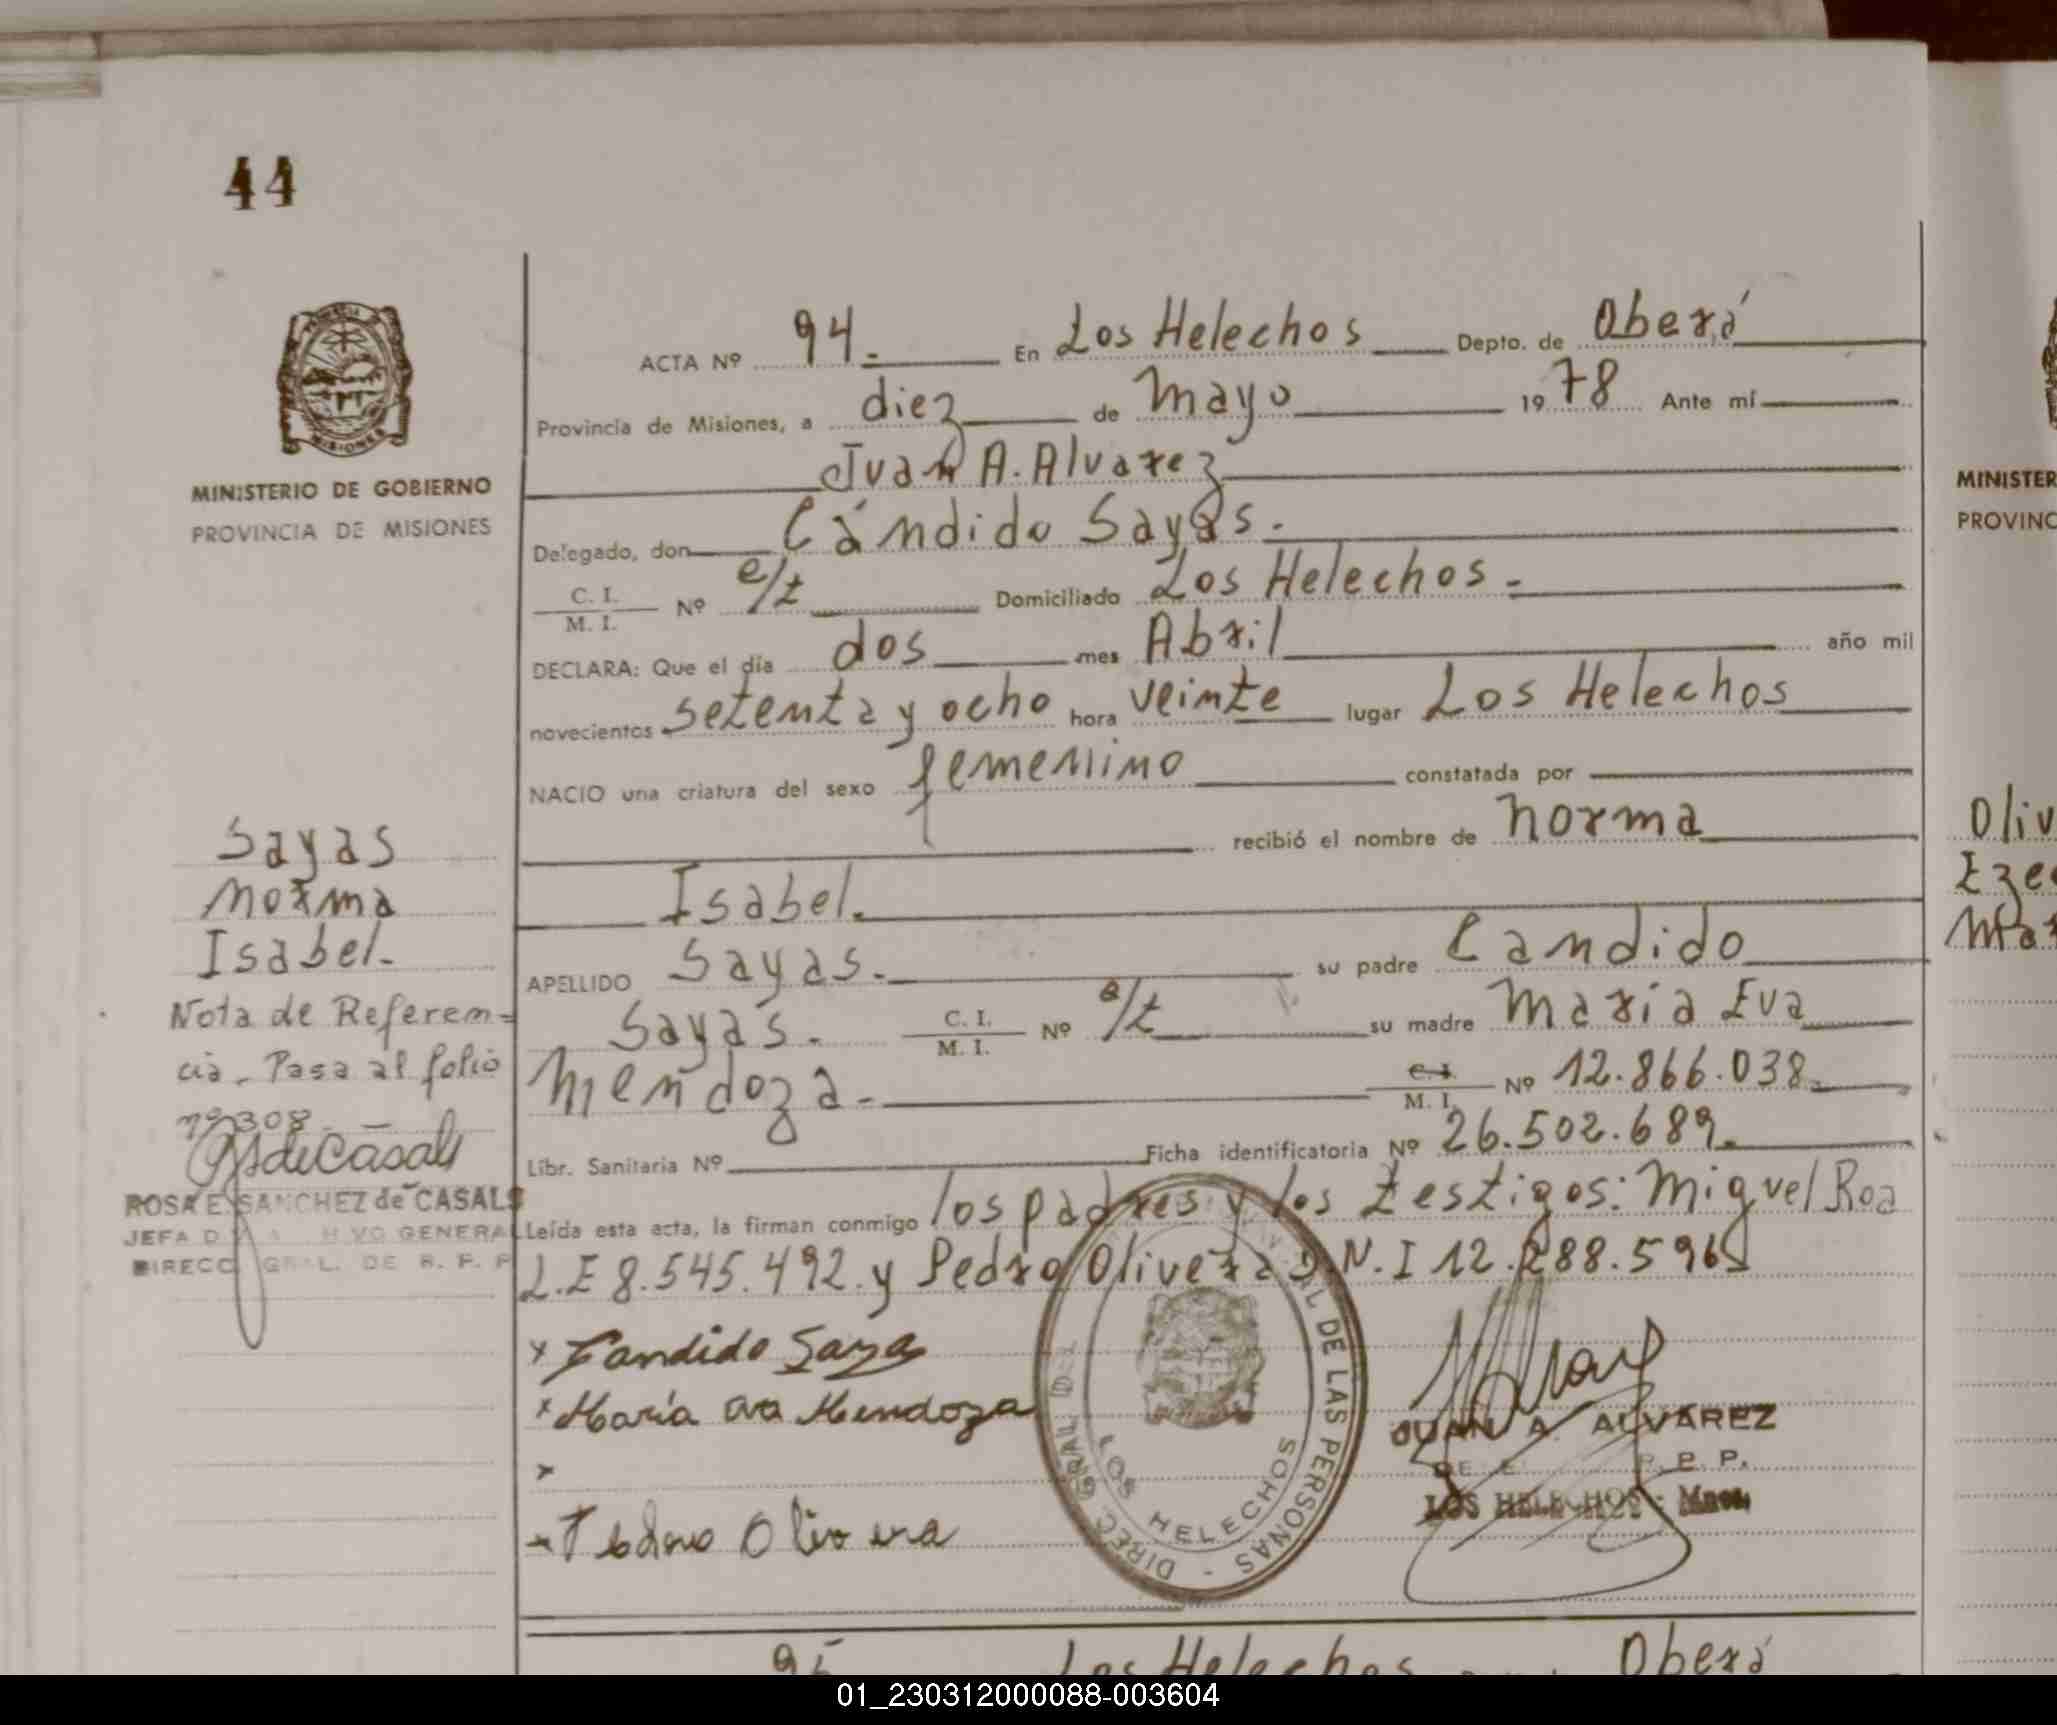 44
ACTA Nº 94.- En Los Helechos Depto. de Oberá
Provincia de Misiones, a diez de Mayo 1978 Ante mí
Juan A. Alvarez
Delegado, don Cándido Sayas.
C. I. / M. I. Nº e/t Domiciliado Los Helechos.-
DECLARA: Que el día dos mes Abril año mil
novecientos setenta y ocho hora veinte lugar Los Helechos
NACIO una criatura del sexo femenino constatada por
recibió el nombre de Norma
Isabel.
APELLIDO Sayas.- su padre Candido
Sayas.- C. I. / M. I. Nº e/t su madre María Eva
Mendoza.- C. I. / M. I. Nº 12.866.038.-
Libr. Sanitaria Nº Ficha identificatoria Nº 26.502.689.-
Leída esta acta, la firman conmigo los padres y los testigos: Miguel Roa
L.E 8.545.492. y Pedro Olivera D.N.I 12.288.596
x Candido Saya
x María eva Mendoza
x
Olivera
DIREC. GRAL DEL DE LAS PERSONAS -
LOS HELECHOS
JUAN A. ALVAREZ
R. P. P.
LOS HELECHOS - Mnes.
MINISTERIO DE GOBIERNO
PROVINCIA DE MISIONES
MISIONES
Sayas
Norma
Isabel.-
Nota de Referen-
cia. Pasa al folio
nº 308
RS de Casals
ROSA E. SANCHEZ de CASALS
JEFA GENERAL
DIRECC. GRAL. DE R. P. P
MINISTER
PROVINC
Oliv
Eze
Mar
95 Los Helechos Oberá
01_230312000088-003604